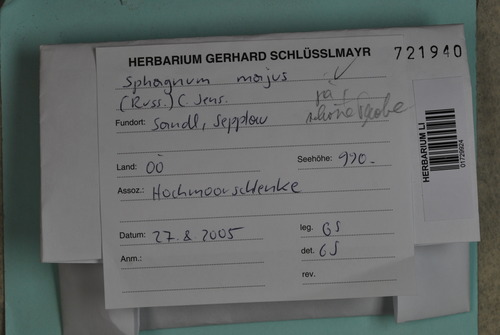 HERBARIUM GERHARD SCHLÜSSLMAYR
721940
Sphagnum majus
(Russ.) C. Jens.
ja!
schöne Probe
Fundort: Sandl, Sepplau
Land: OÖ
Seehöhe: 990.-
Assoz.: Hochmoorschlenke
Datum: 27.8.2005
leg. GS
Anm.:
det. GS
rev.
HERBARIUM LI
01729924